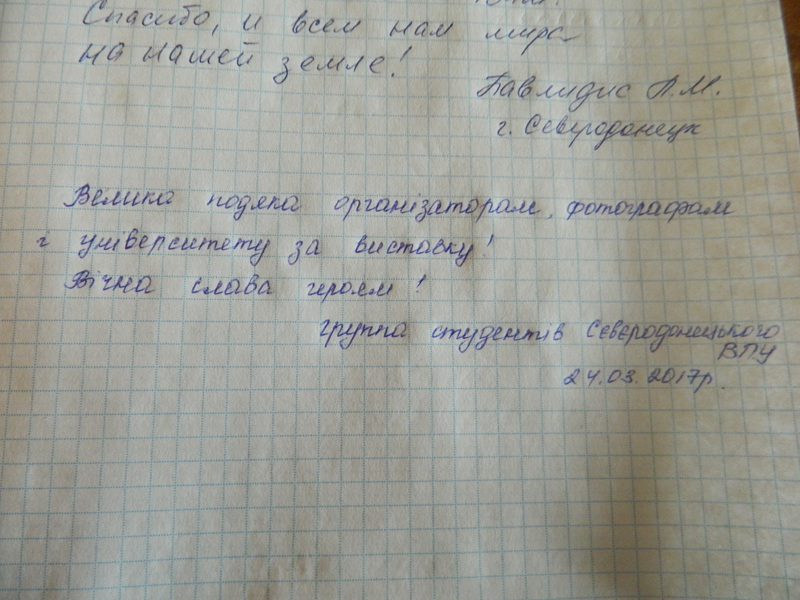 Спасибо, и всем нам мира
на нашей земле!
Павлидис А.М.
г. Сєвєродонецк
Велика подяка організаторам, фотографам
і університету за виставку!
Вічна слава героям!
группа студентів Сєвєродонецького
ВПУ
24.03.2017р.